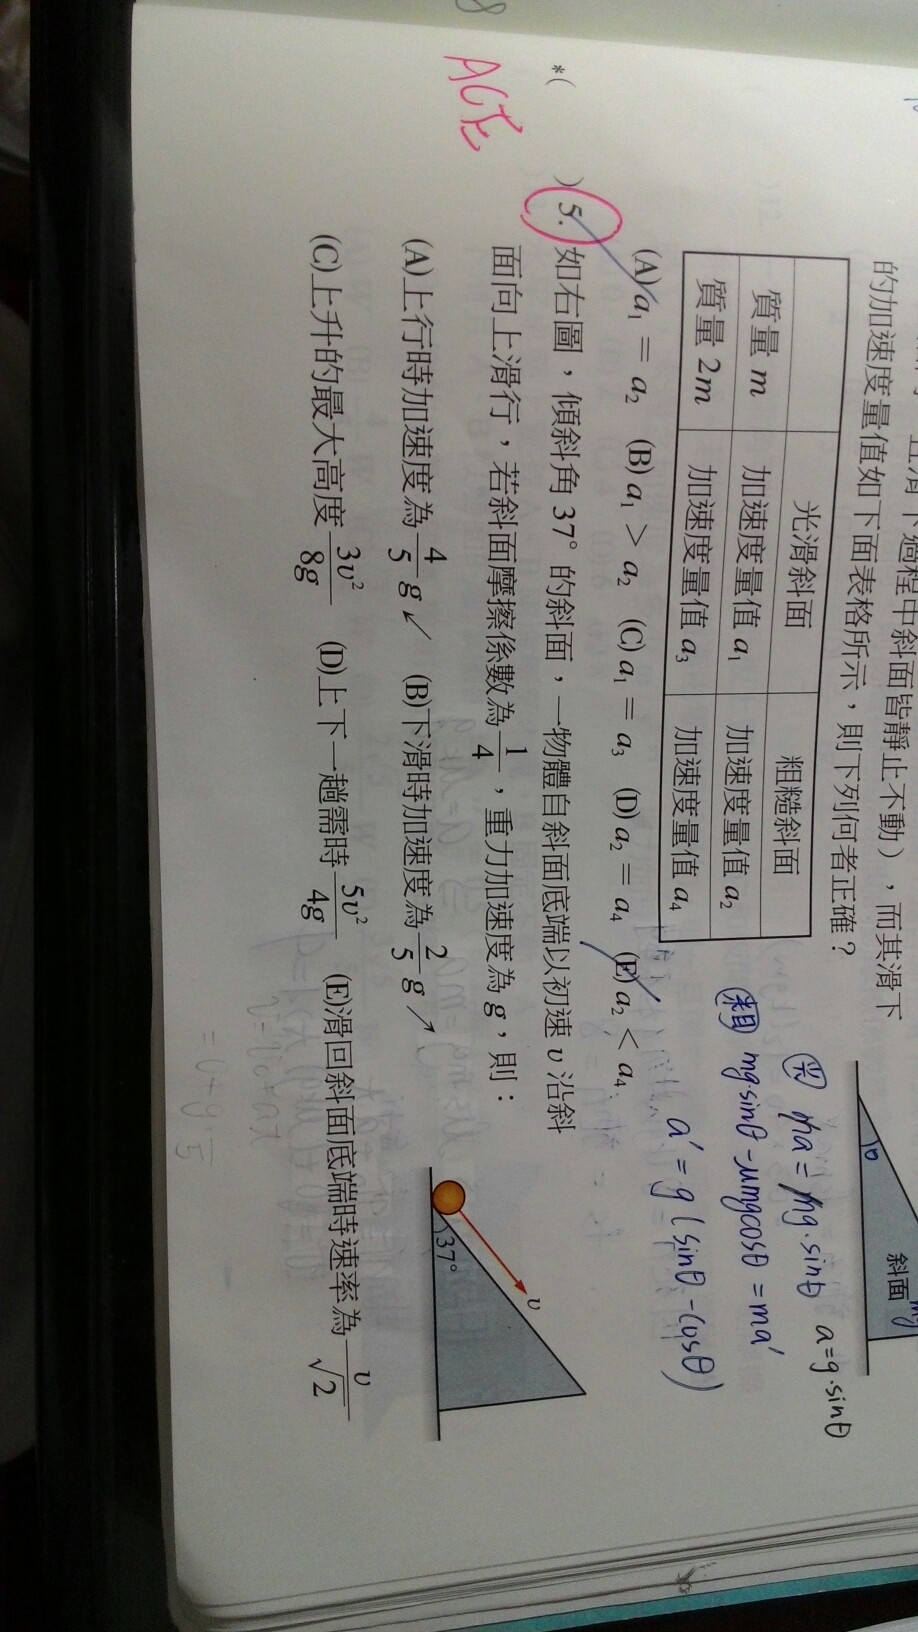 的加速度量值如下面表格所示，則下列何者正確？
光滑斜面 粗糙斜面
質量 m 加速度量值 a₁ 加速度量值 a₂
質量 2m 加速度量值 a₃ 加速度量值 a₄
(A) a₁ = a₂ (B) a₁ > a₂ (C) a₁ = a₃ (D) a₂ = a₄ (E) a₂ < a₄
θ
斜面
mg
光 ma = mg·sinθ a=g·sinθ
粗 mg·sinθ - μmgcosθ = ma'
a' = g (sinθ - cosθ)
*( ) 5. 如右圖，傾斜角 37° 的斜面，一物體自斜面底端以初速 v 沿斜
面向上滑行，若斜面摩擦係數為 1/4，重力加速度為 g，則：
(A)上行時加速度為 4/5 g↙ (B)下滑時加速度為 2/5 g↗
(C)上升的最大高度 3v²/8g (D)上下一趟需時 5v²/4g (E)滑回斜面底端時速率為 v/√2
v
37°
ACE